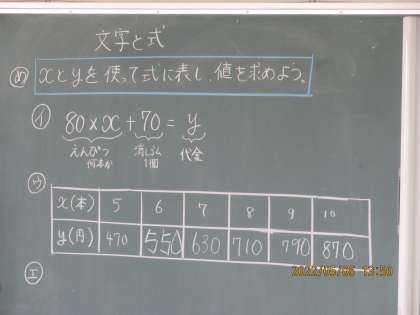 文字と式
め xとyを使って式に表し、値を求めよう。
イ 80×x+70=y
えんぴつ 何本か 消しゴム 1個 代金
ウ
x(本) 5 6 7 8 9 10
y(円) 470 550 630 710 790 870
エ